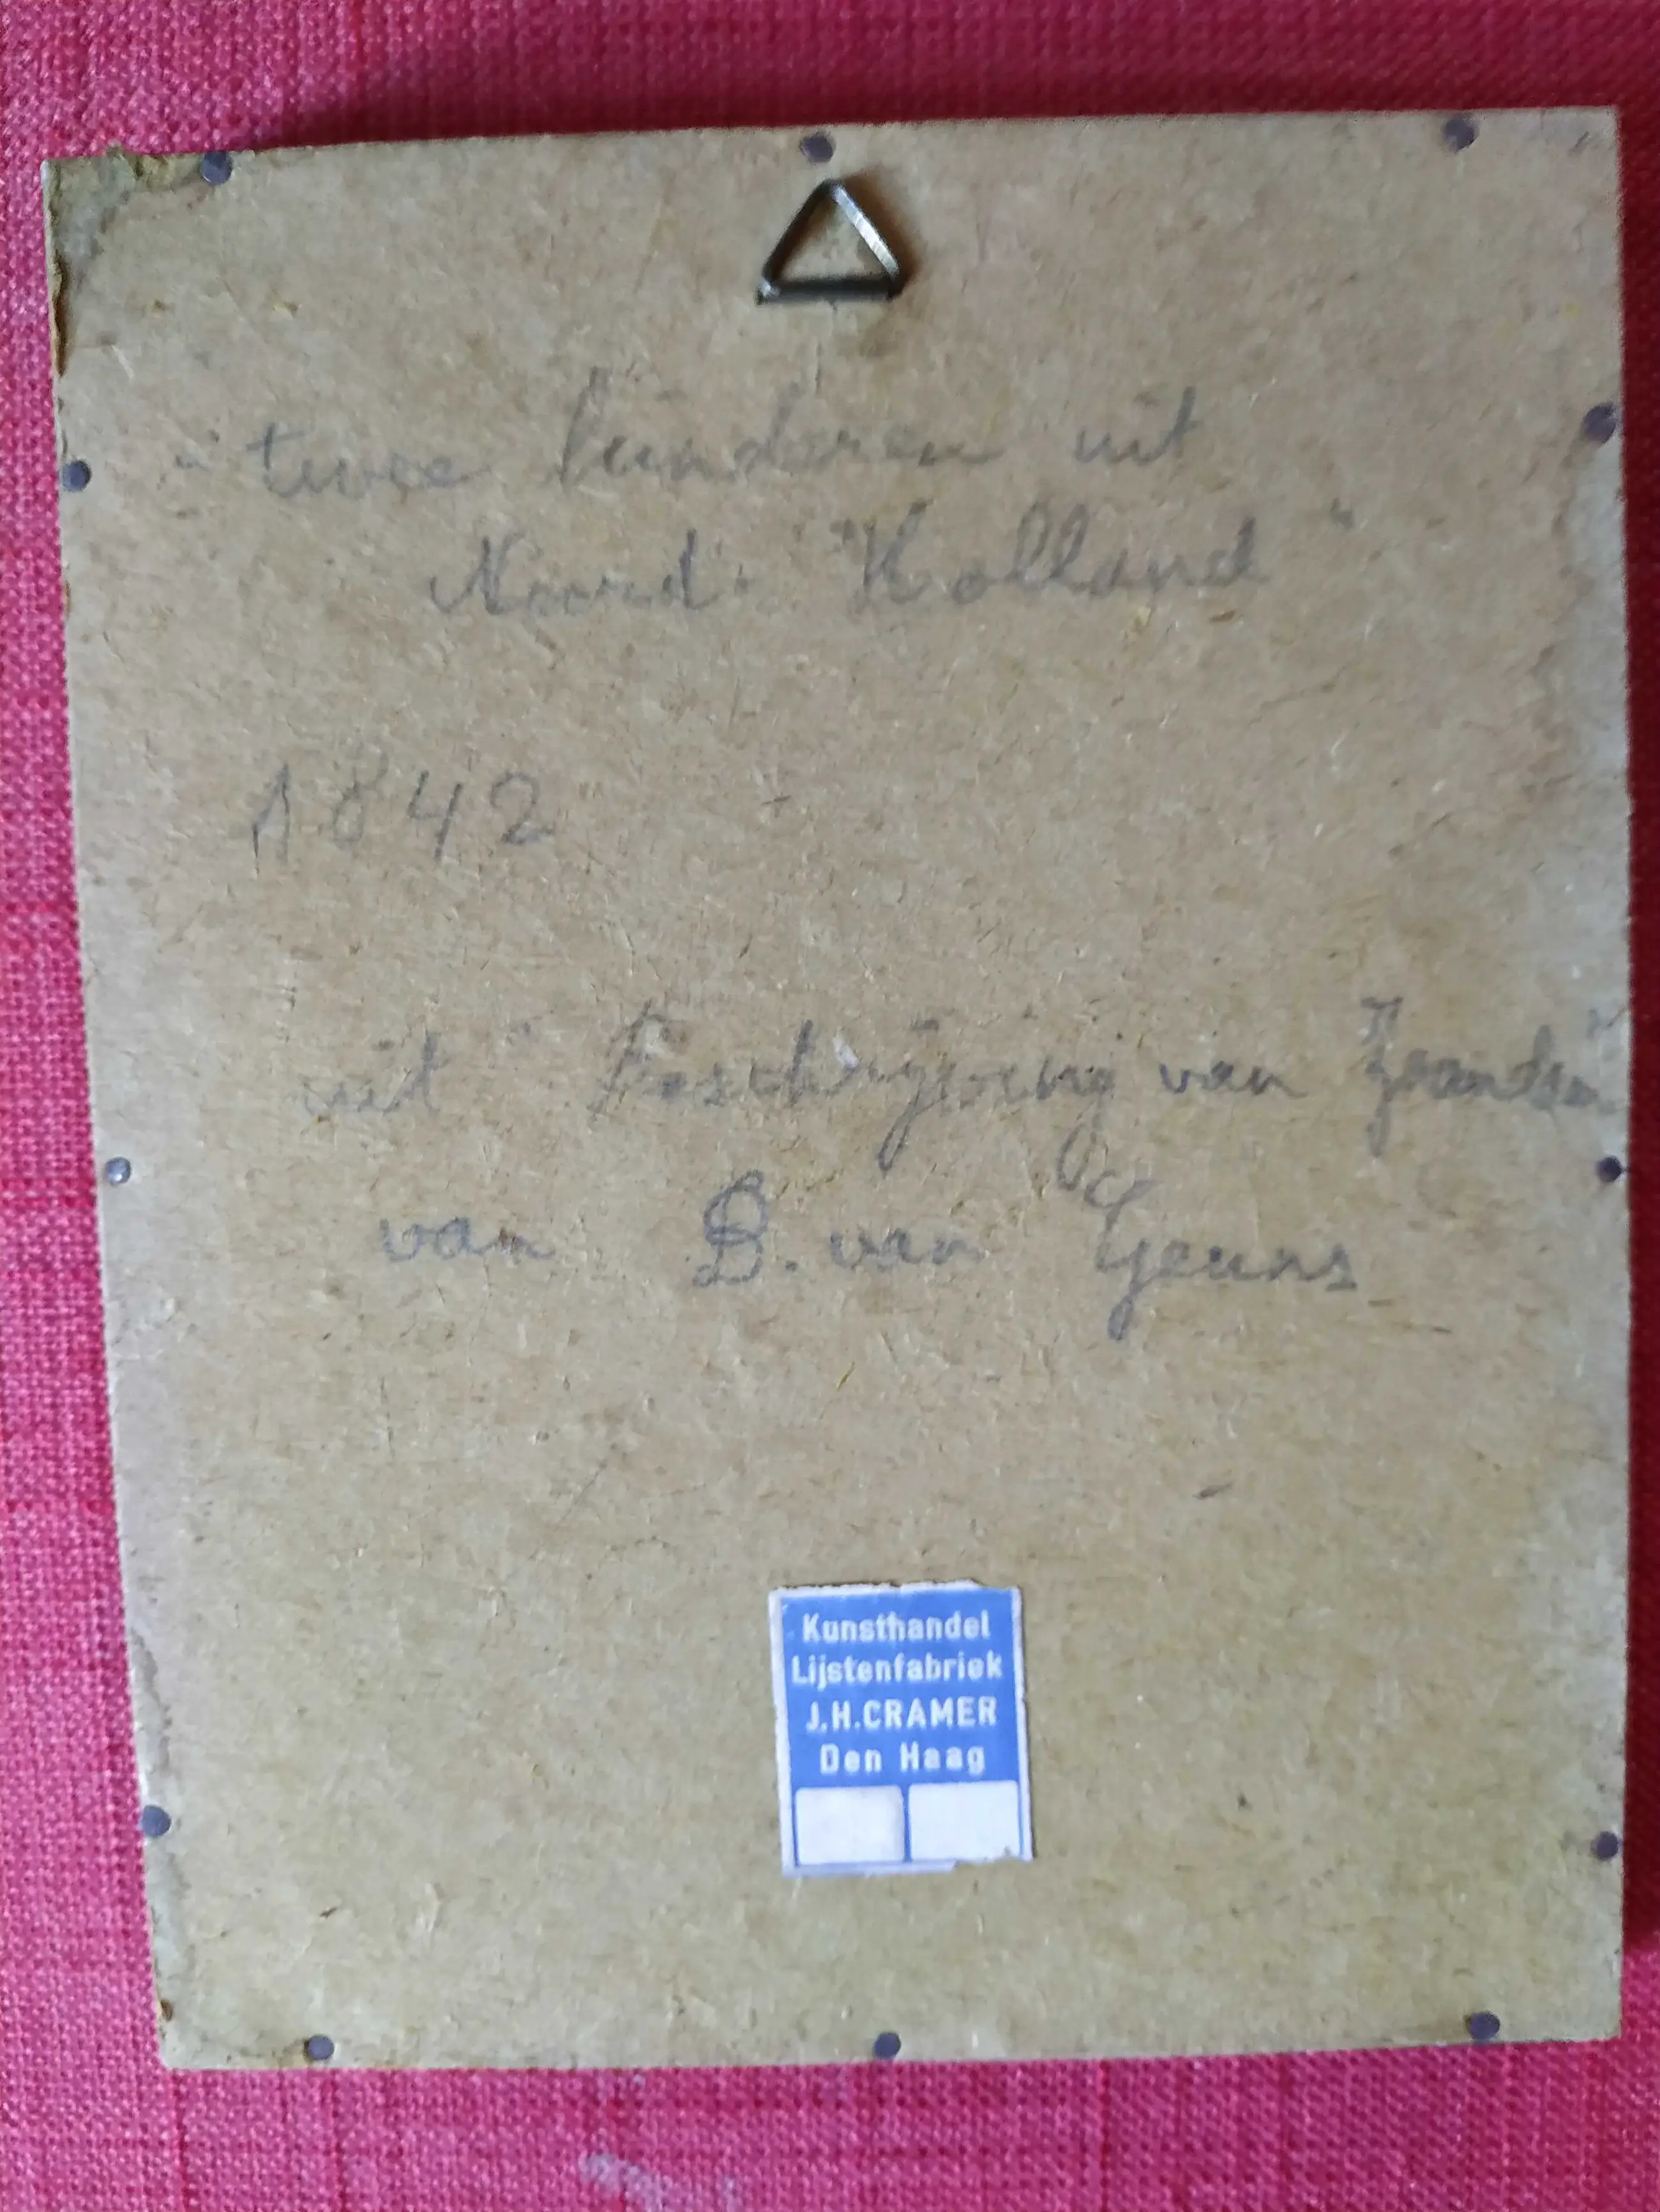 " twee kinderen uit
Noord-Holland "
1842
uit " Beschrijving van
van B. van Geuns
Kunsthandel
Lijstenfabriek
J.H.CRAMER
Den Haag